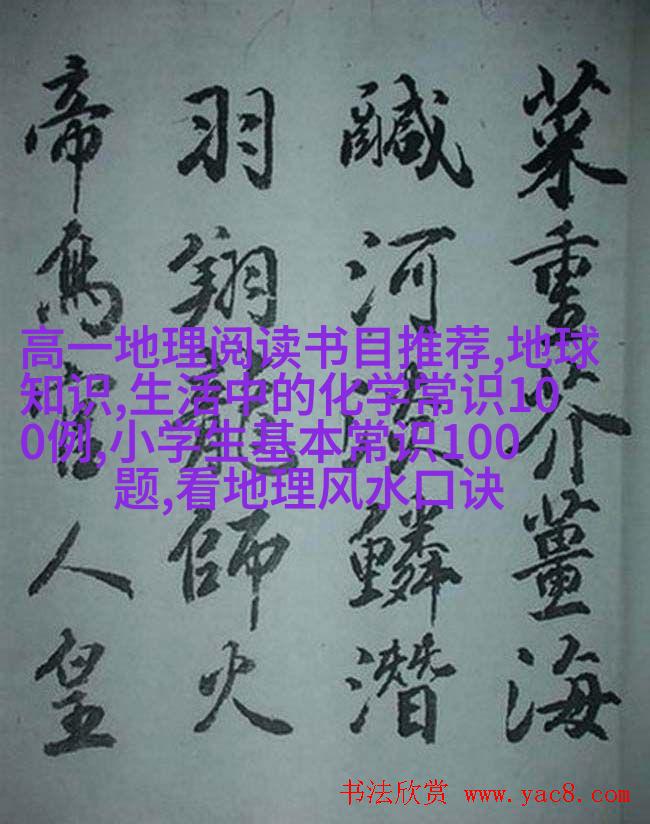 菜重芥薑海
鹹河淡鱗潛
羽翔龍師火
帝鳥官人皇
高一地理阅读书目推荐,地球
知识,生活中的化学常识10
0例,小学生基本常识100
题,看地理风水口诀
书法欣赏 www.yac8.com